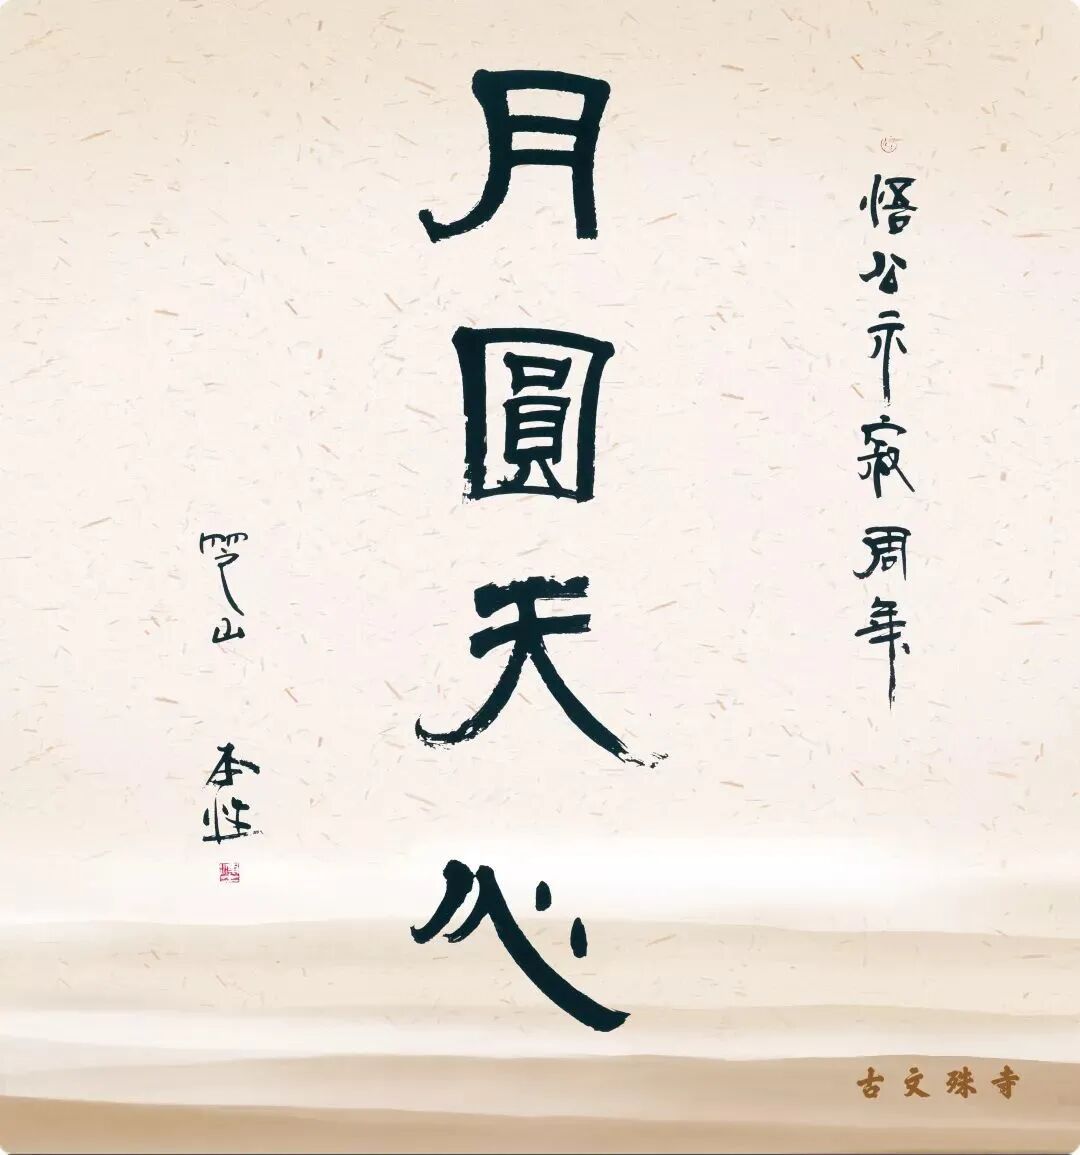 悟公示寂周年
月圓天心
山
本性
古文殊寺